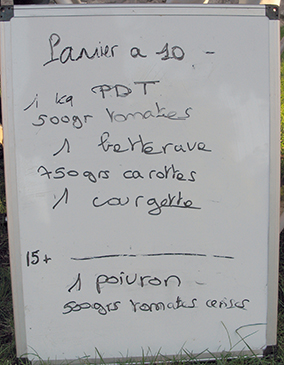 Panier a 10.-
1 kg PDT
500gr tomates
1 betterave
750grs carottes
1 courgette
15+
1 poivron
500grs tomates cerises